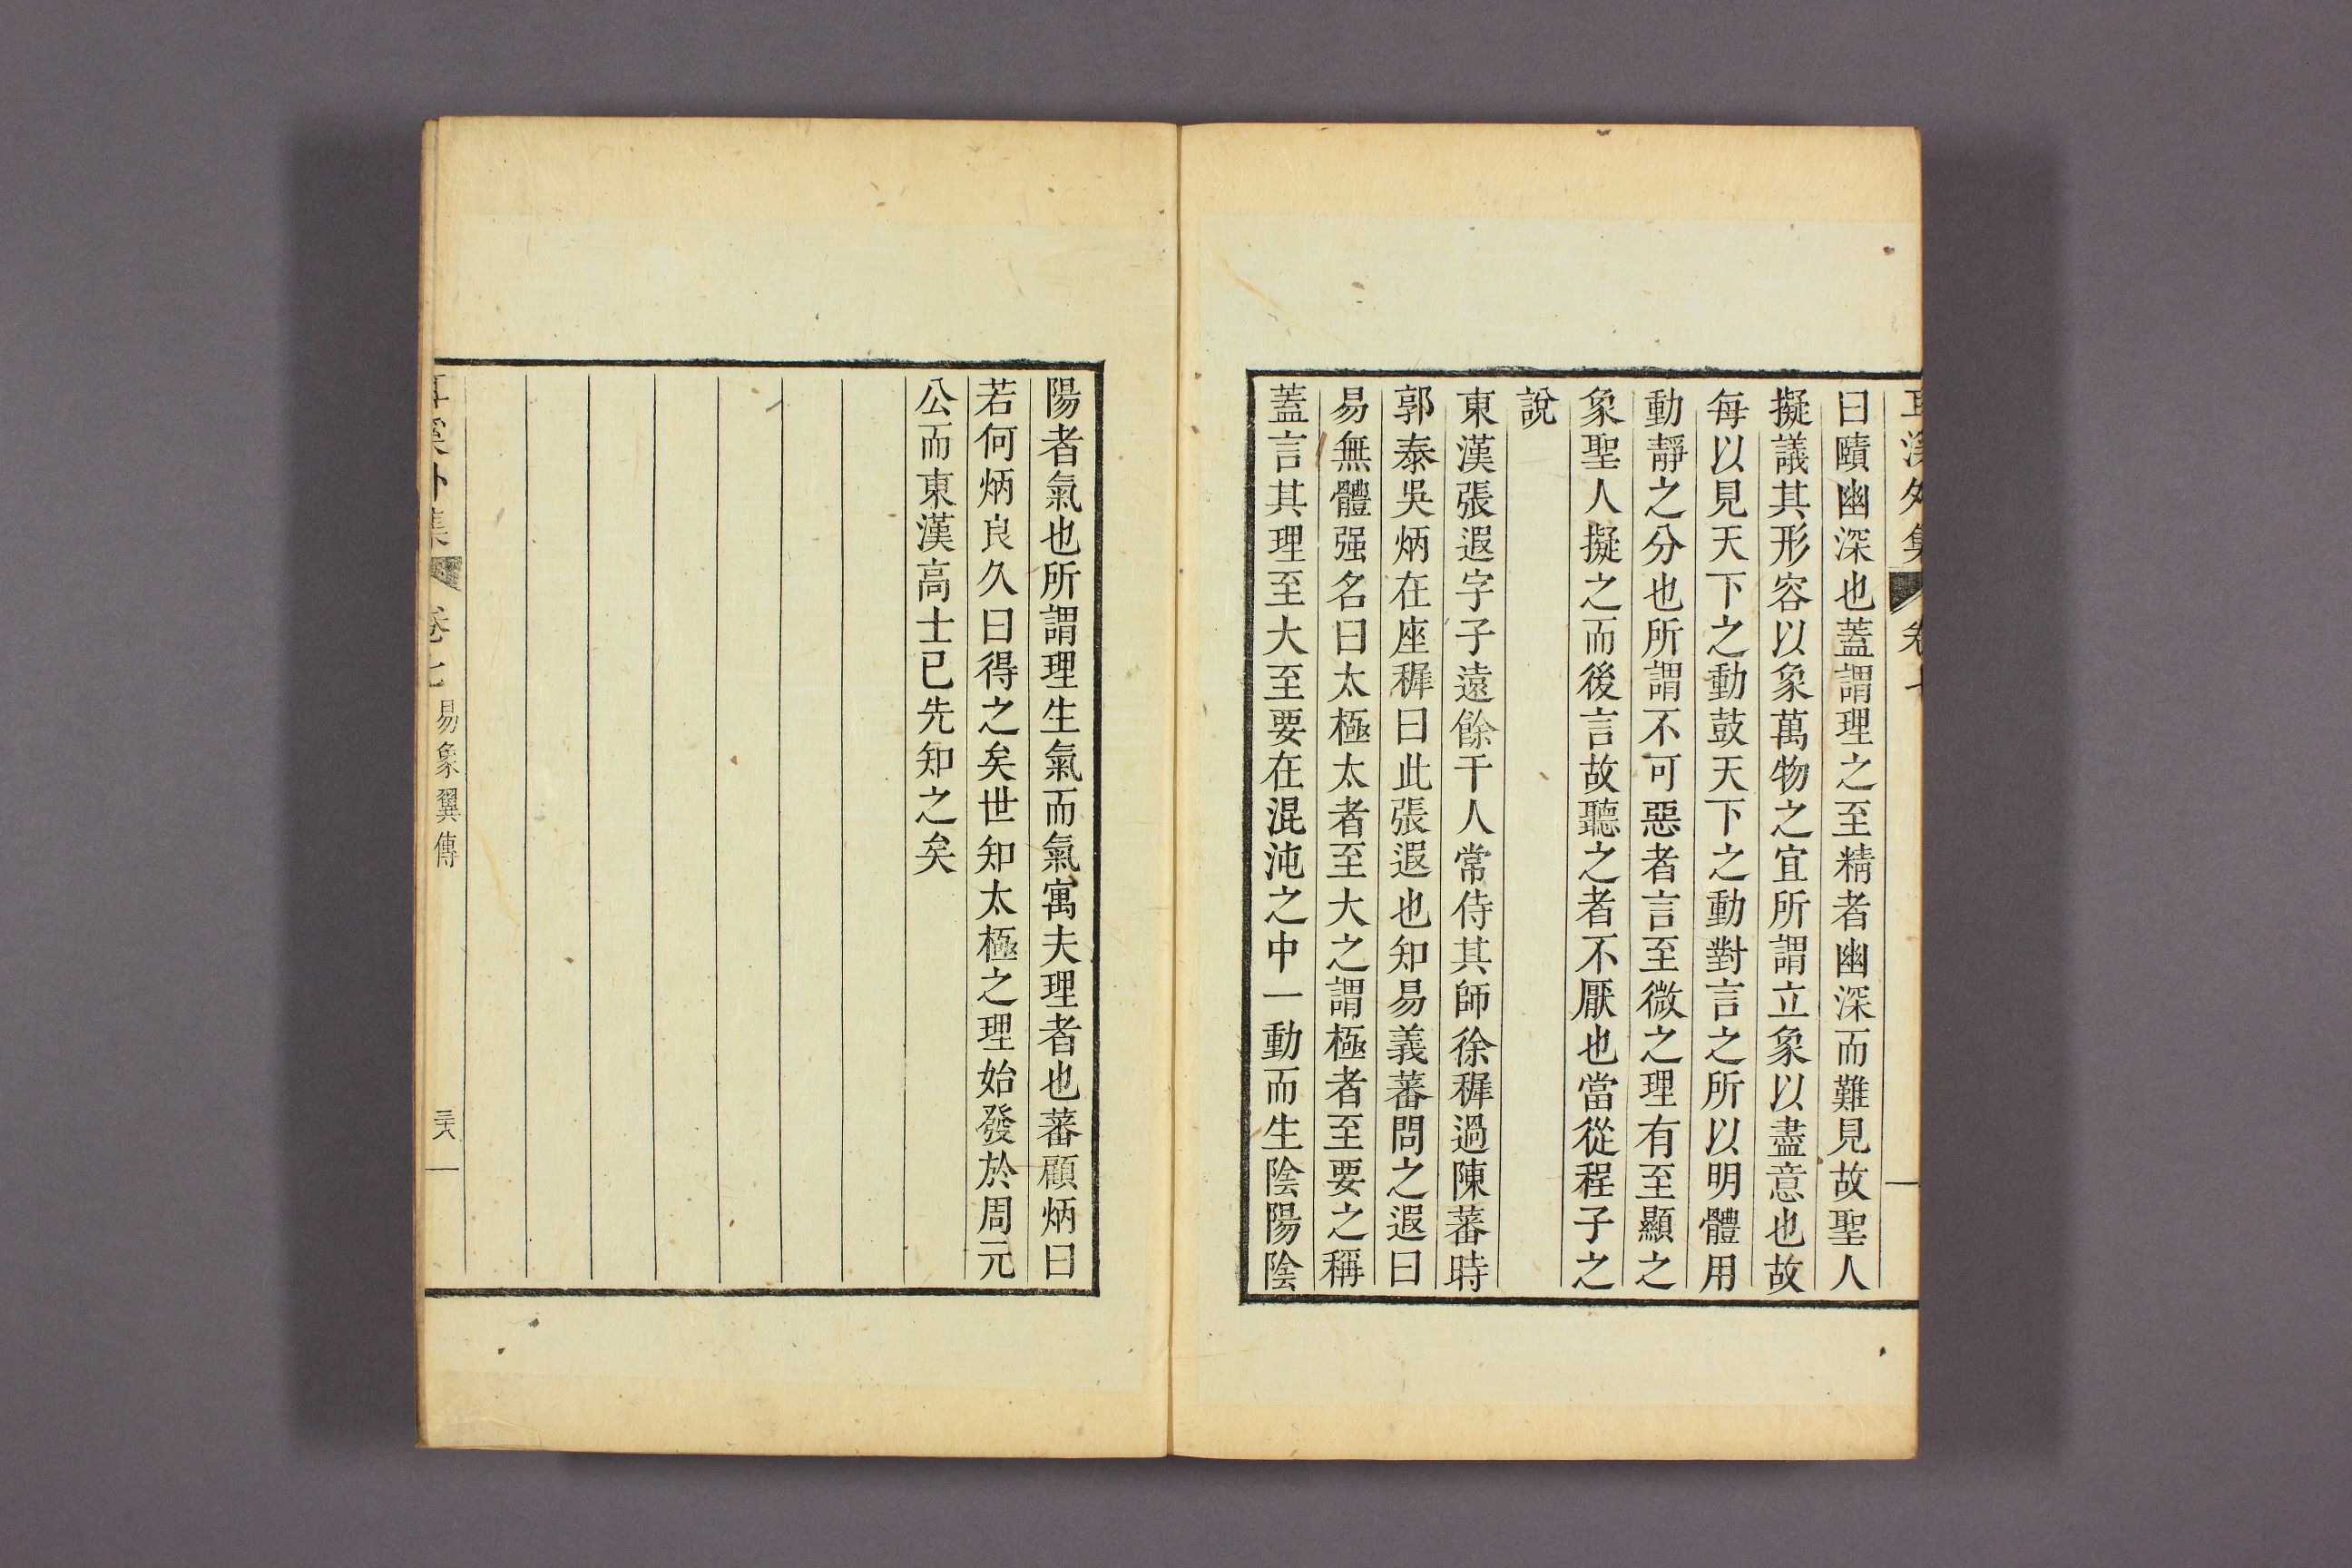 耳溪外集 卷七
曰賾幽深也蓋謂理之至精者幽深而難見故聖人
擬議其形容以象萬物之宜所謂立象以盡意也故
每以見天下之動鼓天下之動對言之所以明體用
動靜之分也所謂不可惡者言至微之理有至顯之
象聖人擬之而後言故聽之者不厭也當從程子之
說
東漢張遐字子遠餘干人常侍其師徐穉過陳蕃時
郭泰吳炳在座穉曰此張遐也知易義蕃問之遐曰
易無體强名曰太極太者至大之謂極者至要之稱
蓋言其理至大至要在混沌之中一動而生陰陽陰
陽者氣也所謂理生氣而氣寓夫理者也蕃顧炳曰
若何炳良久曰得之矣世知太極之理始發於周元
公而東漢高士已先知之矣
耳溪外集 卷七 易象翼傳 三十八